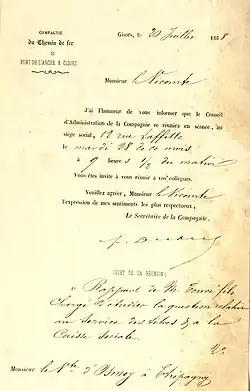 COMPAGNIE
du Chemin de fer
de
PONT DE L'ARCHE A GISORS.
Gisors, le 20 Juillet 1868
Monsieur le Vicomte
J'ai l'honneur de vous informer que le Conseil
d'Administration de la Compagnie se réunira en séance, au
siége social, 12 rue Laffitte
le mardi 28 de ce mois
à 9 heures 1/2 du matin
Vous êtes invité à vous réunir à vos collègues.
Veuillez agréer, Monsieur le Vicomte
l'expression de mes sentiments les plus respectueux,
Le Secrétaire de la Compagnie,
OBJET DE LA RÉUNION:
Rapport de M. fils,
Chargé d'étudier la question relative
au Service des Titres & à la
Caisse Sociale.
Monsieur le Vte d' à